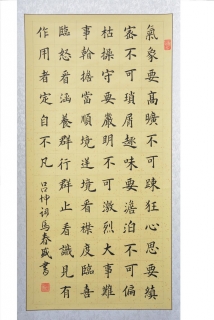 氣象要高曠不可疎狂心思要縝
密不可瑣屑趣味要澹泊不可偏
枯操守要嚴明不可激烈大事難
事看擔當順境逆境看襟度臨喜
臨怒看涵養群行群止看識見有
作用者定自不凡
呂坤 馬春 書